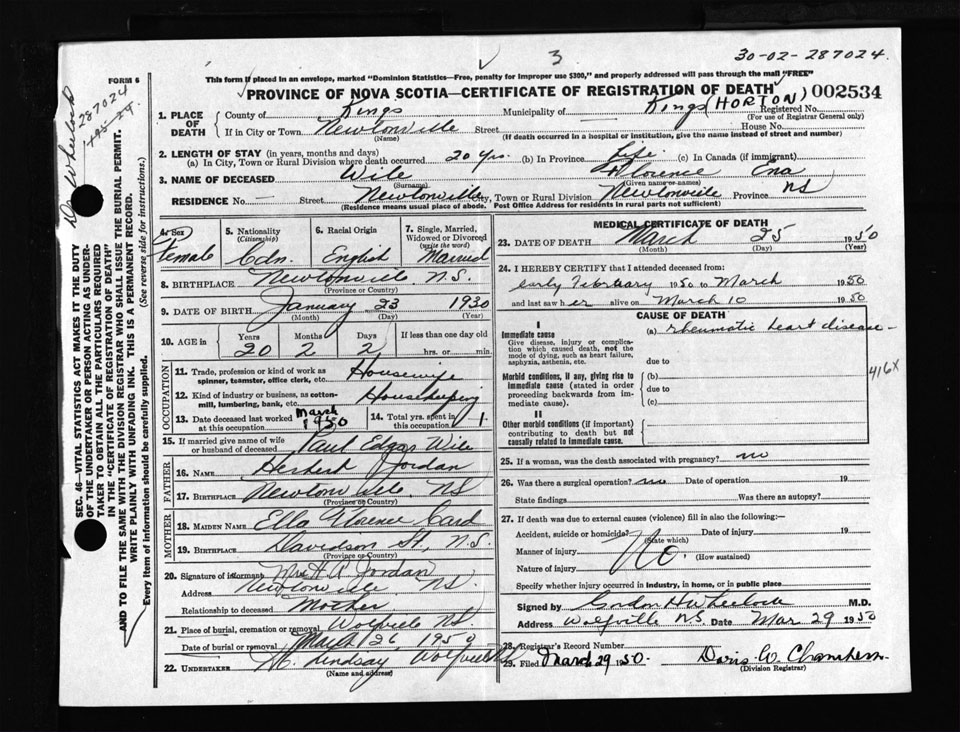 3
30-02-287024
FORM 6
This form if placed in an envelope, marked "Dominion Statistics—Free, penalty for improper use $300," and properly addressed will pass through the mail "FREE"
PROVINCE OF NOVA SCOTIA—CERTIFICATE OF REGISTRATION OF DEATH 002534
1. PLACE OF DEATH
County of Kings Municipality of Kings (HORTON) Registered No.
(For use of Registrar General only)
If in City or Town Newtonville Street House No.
(Name) (If death occurred in a hospital or institution, give the name instead of street and number)
2. LENGTH OF STAY (in years, months and days)
(a) In City, Town or Rural Division where death occurred 20 yrs. (b) In Province Life (c) In Canada (if immigrant)
3. NAME OF DECEASED Wile Florence Ena
(Surname) (Given name or names)
RESIDENCE No. — Street Newtonville City, Town or Rural Division Newtonville Province NS
(Residence means usual place of abode. Post Office Address for residents in rural parts not sufficient)
4. Sex Female
5. Nationality (Citizenship) Cdn.
6. Racial Origin English
7. Single, Married, Widowed or Divorced (write the word) Married
8. BIRTHPLACE Newtonville N.S.
(Province or Country)
9. DATE OF BIRTH January 23 1930
(Month) (Day) (Year)
10. AGE in Years 20 Months 2 Days 2 If less than one day old hrs. or min.
OCCUPATION
11. Trade, profession or kind of work as spinner, teamster, office clerk, etc. Housewife
12. Kind of industry or business, as cotton-mill, lumbering, bank, etc. Housekeeping
13. Date deceased last worked at this occupation March 1950
14. Total yrs. spent in this occupation 1
15. If married give name of wife or husband of deceased Paul Edgar Wile
FATHER
16. NAME Herbert Jordan
17. BIRTHPLACE Newtonville, NS
(Province or Country)
MOTHER
18. MAIDEN NAME Ella Florence Card
19. BIRTHPLACE Davidson St, N.S.
(Province or Country)
20. Signature of informant Mrs H A Jordan
Address Newtonville NS.
Relationship to deceased Mother
21. Place of burial, cremation or removal Wolfville NS
Date of burial or removal March 26 1950
22. UNDERTAKER Lindsay Wolfville
(Name and address)
MEDICAL CERTIFICATE OF DEATH
23. DATE OF DEATH March 25 1950
(Month) (Day) (Year)
24. I HEREBY CERTIFY that I attended deceased from:
early February 1950 to March 1950
and last saw her alive on March 10 1950
CAUSE OF DEATH
I
Immediate cause (a) rheumatic heart disease
Give disease, injury or complication which caused death, not the mode of dying, such as heart failure, asphyxia, asthenia, etc.
due to
Morbid conditions, if any, giving rise to immediate cause (stated in order proceeding backwards from immediate cause).
(b)
due to
(c)
416X
II
Other morbid conditions (if important) contributing to death but not causally related to immediate cause.
25. If a woman, was the death associated with pregnancy? no
26. Was there a surgical operation? no Date of operation 19
State findings Was there an autopsy?
27. If death was due to external causes (violence) fill in also the following:—
Accident, suicide or homicide? Date of injury 19
(State which)
Manner of injury No. (How sustained)
Nature of injury
Specify whether injury occurred in industry, in home, or in public place
Signed by Gordon H Wheelock M.D.
Address Wolfville N.S. Date Mar 29 1950
28. Registrar's Record Number
29. Filed March 29 1950. Doris W.
(Division Registrar)
Dr Wheelock
287024
SEC. 46—VITAL STATISTICS ACT MAKES IT THE DUTY
OF THE UNDERTAKER OR PERSON ACTING AS UNDER-
TAKER TO OBTAIN ALL THE PARTICULARS REQUIRED
IN THE "CERTIFICATE OF REGISTRATION OF DEATH"
AND TO FILE THE SAME WITH THE DIVISION REGISTRAR WHO SHALL ISSUE THE BURIAL PERMIT.
WRITE PLAINLY WITH UNFADING INK. THIS IS A PERMANENT RECORD.
Every item of information should be carefully supplied. (See reverse side for instructions.)